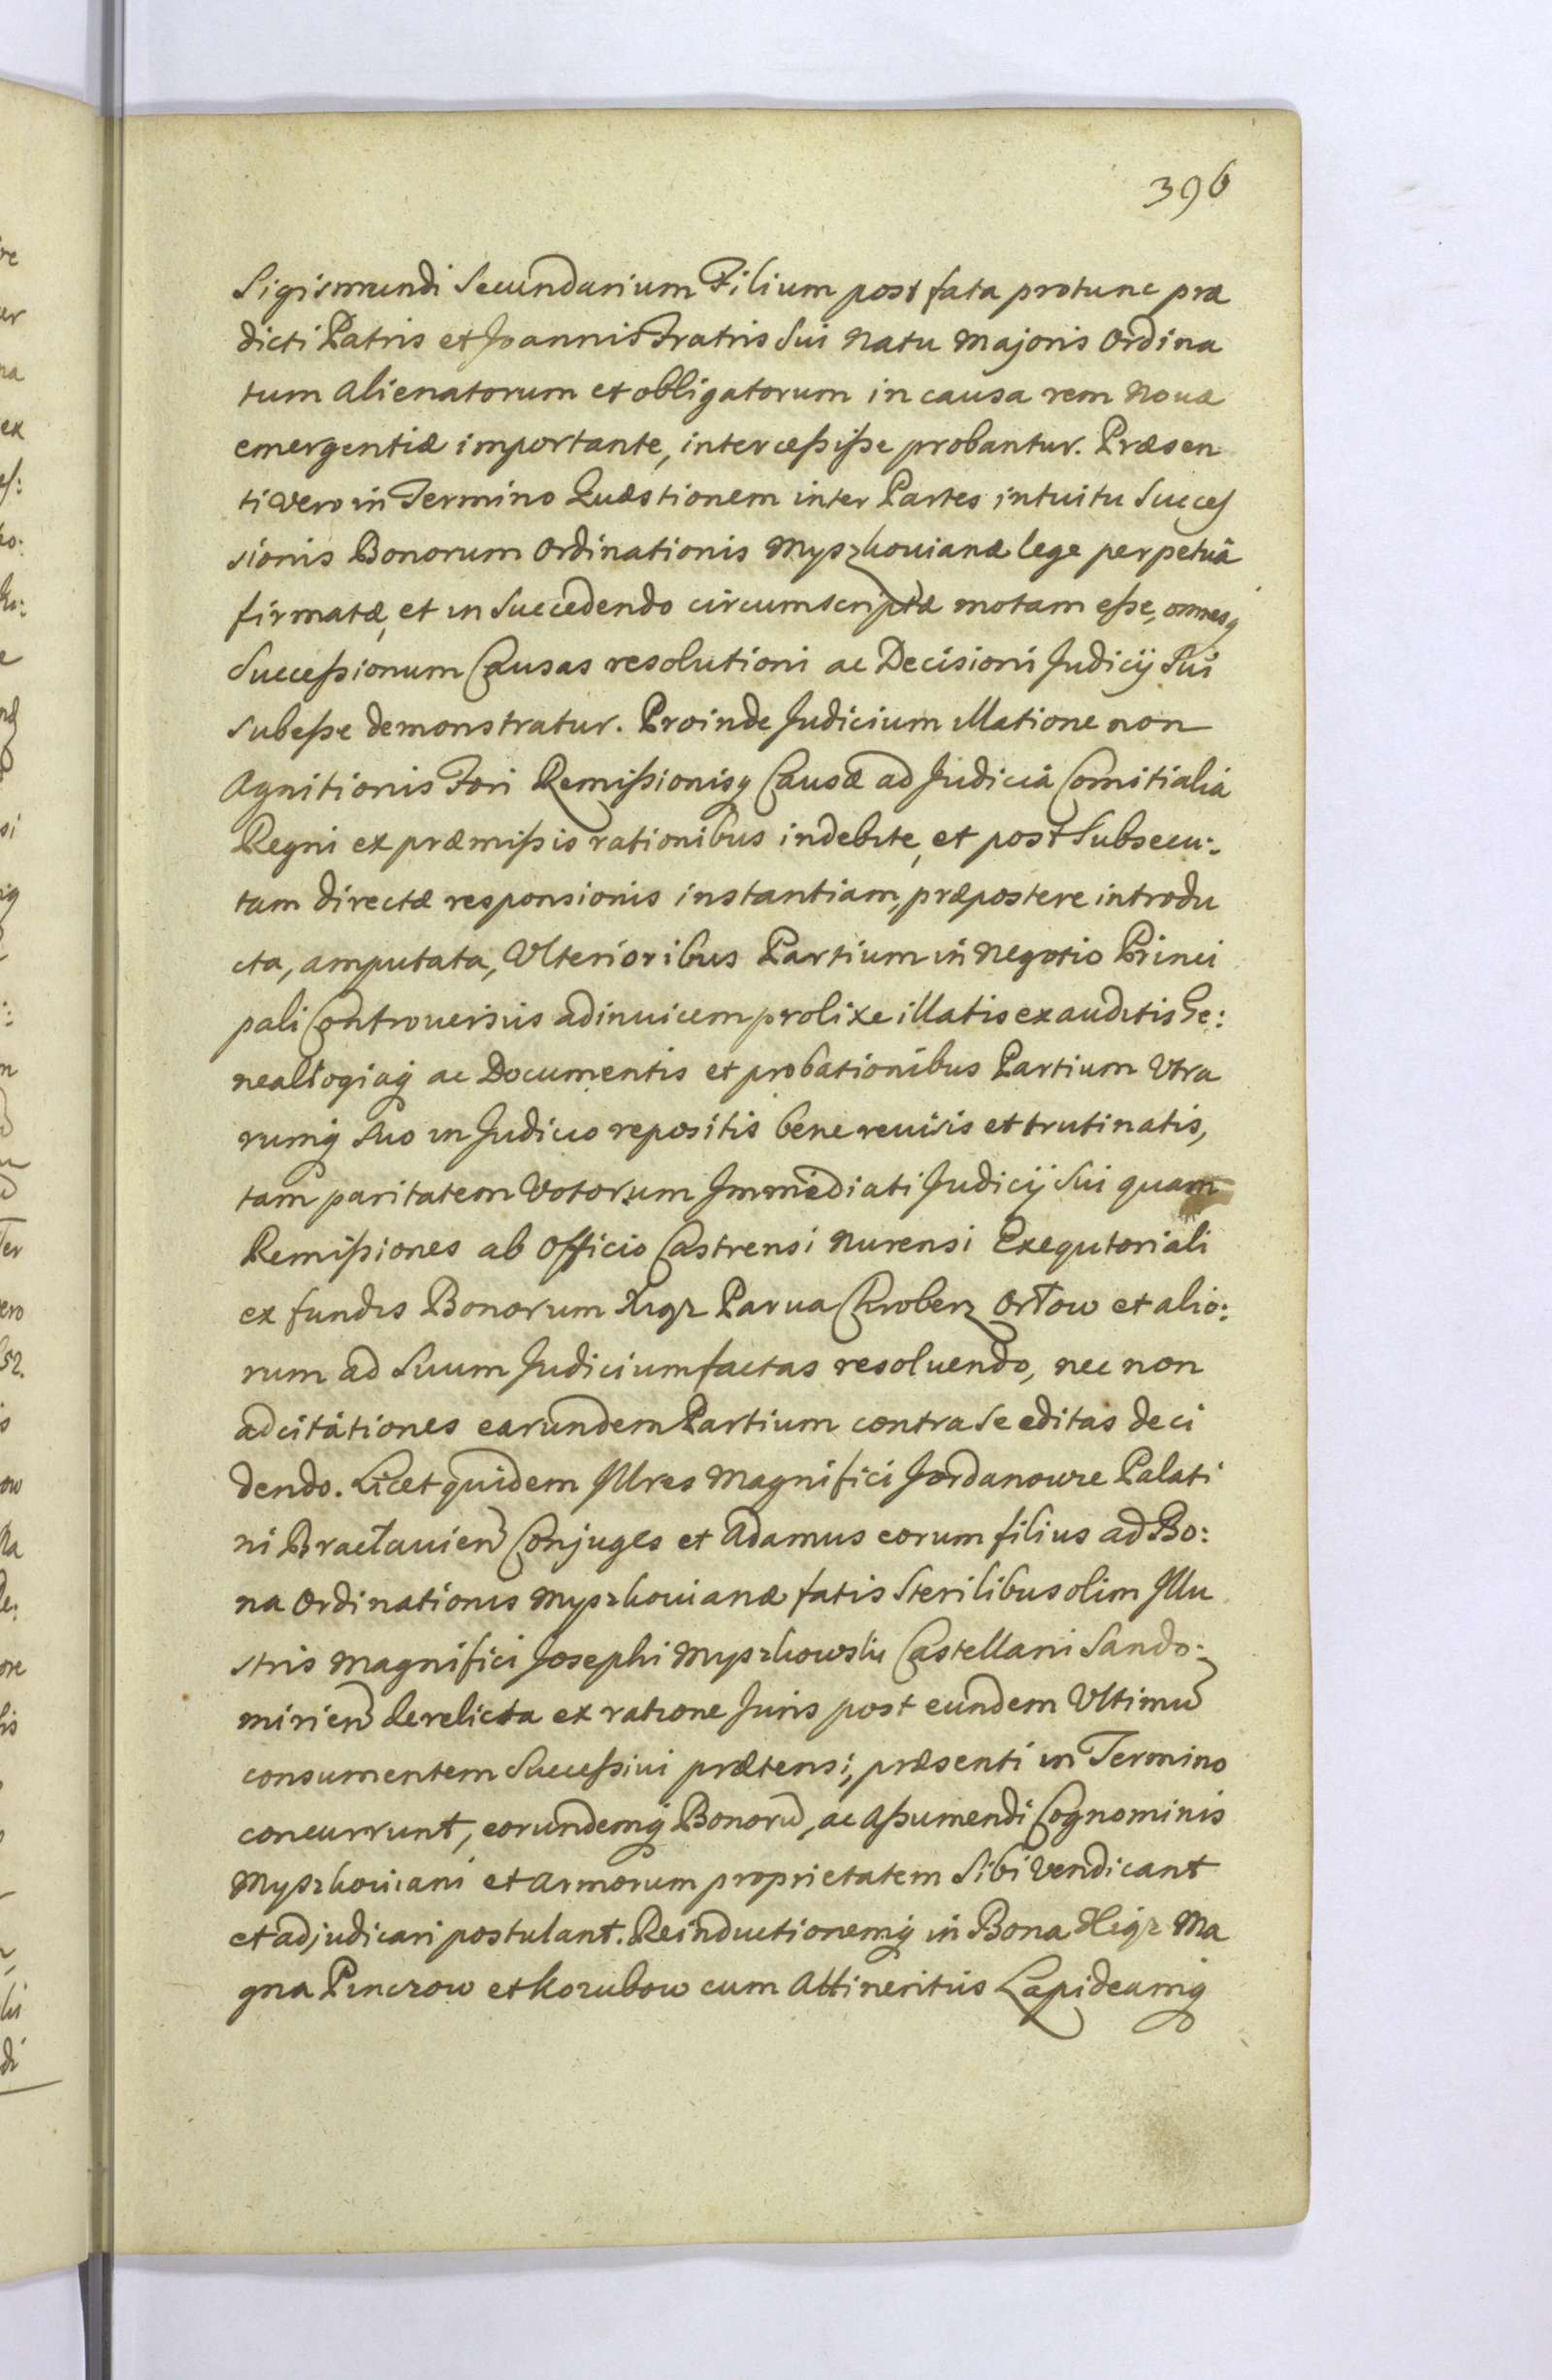 396
Sigismundi Secundarium Filium post fata protunc præ
dicti Patris et Joannis Fratris Sui Natu Majoris Ordina
tum Alienatorum et obligatorum in causa rem Nouæ
emergentiæ importante, intercessisse probantur. Præsen
ti Vero in Termino Quæstionem inter Partes intuitu Succes
sionis Bonorum Ordinationis Myszkouianæ lege perpetuâ
firmatæ, et in Succedendo circumscriptæ motam esse, omnesq
Successionum Causas resolutioni ac Decisioni Judicij Sui
subesse demonstratur. Proinde Judicium illatione non
Agnitionis Fori Remissionisq Causæ ad Judicia Comitialia
Regni ex præmissis rationibus indebite, et post Subsecu:
tam directæ responsionis instantiam, præpostere introdu
cta, amputata, Ulterioribus Partium in Negotio Princi
pali Controuersiis adinuicem prolixe illatis exauditis Ge:
nealogiaq ac Documentis et probationibus Partium Utra
rumq suo in Judicio repositis bene reuisis et trutinatis,
tam paritatem Votorum Immediati Judicij Sui quam
Remissiones ab Officio Castrensi Nurensi Exequtoriali
ex fundis Bonorum Xiąz Parua Chroberz Orłow et alio:
rum ad Suum Judicium factas resoluendo, nec non
ad citationes earundem Partium contra Se editas deci
dendo. Licet quidem Illres Magnifici Jordanowie Palati
ni Bracłauien Conjuges et Adamus eorum filius ad Bo:
na Ordinationis Myszkouianæ fatis Sterilibus olim Illu
stris Magnifici Josephi Myszkowski Castellani Sando:
mirien derelicta ex ratione Juris post eundem Ultimu
consumentem Successiui prætensi, præsenti in Termino
concurrunt, eorundemq Bonoru, ac Assumendi Cognominis
Myszkouiani et Armorum proprietatem Sibi Vendicant
et adjudicari postulant. Reinductionemq in Bona Xiąz Ma
gna Pinczow et Kozubow cum Attinentiis Lapideamq